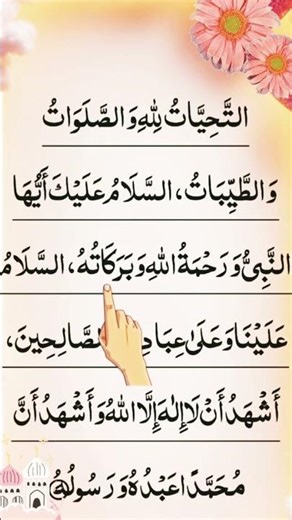 التَّحِيَّاتُ لِلّٰهِ وَالصَّلَوَاتُ
وَالطَّيِّبَاتُ، السَّلَامُ عَلَيْكَ أَيُّهَا
النَّبِيُّ وَرَحْمَةُ اللهِ وَبَرَكَاتُهُ، السَّلَامُ
عَلَيْنَا وَعَلَىٰ عِبَادِ الصَّالِحِينَ،
أَشْهَدُ أَنْ لَا إِلٰهَ إِلَّا اللهُ وَأَشْهَدُ أَنَّ
مُحَمَّدًا عَبْدُهُ وَرَسُولُهُ